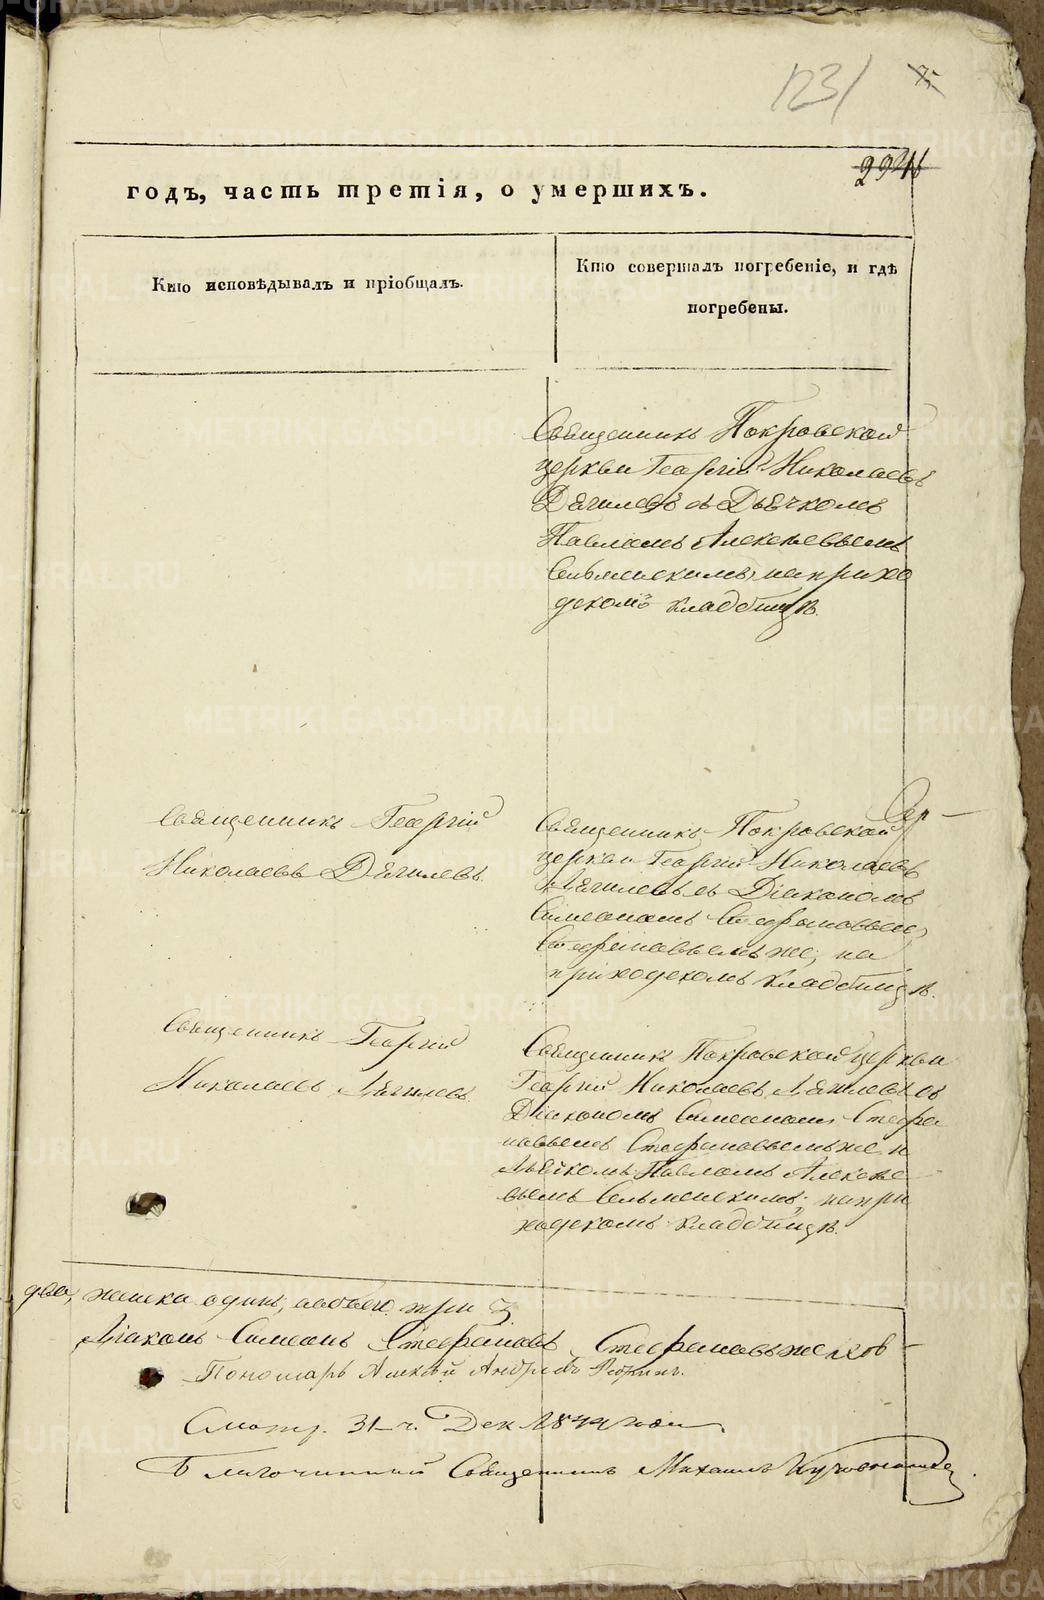 123
294
годъ, часть третія, о умершихъ.
Кто исповѣдывалъ и пріобщалъ.
Кто совершалъ погребеніе, и гдѣ
погребены.
Священникъ Покровской
церкви Георгій Николаевъ
Дягилевъ съ Дьячкомъ
Павломъ Алексѣевымъ
Сельменскимъ, на прихо
дскомъ кладбищѣ.
Священникъ Георгій
Николаевъ Дягилевъ.
Священникъ Покровской
церкви Георгій Николаевъ
Дягилевъ съ Діакономъ
Симеономъ Стефановымъ
Стефановымъ же, на
приходскомъ кладбищѣ.
Священникъ Георгій
Николаевъ Дягилевъ
Священникъ Покровской церкви
Георгій Николаевъ Дягилевъ съ
Діакономъ Симеономъ Стефа
новымъ Стефановымъ же и
Дьячкомъ Павломъ Алексѣе
вымъ Сельменскимъ, на при
ходскомъ кладбищѣ.
два, женска одинъ, обоего три 3
Діаконъ Симеонъ Стефановъ Стефановъ же
Пономарь Алексѣй Андреевъ
Смотр. 31 ч. Дек. 1844 года
Благочинный Священникъ Михаилъ
METRIKI.GASO-URAL.RU